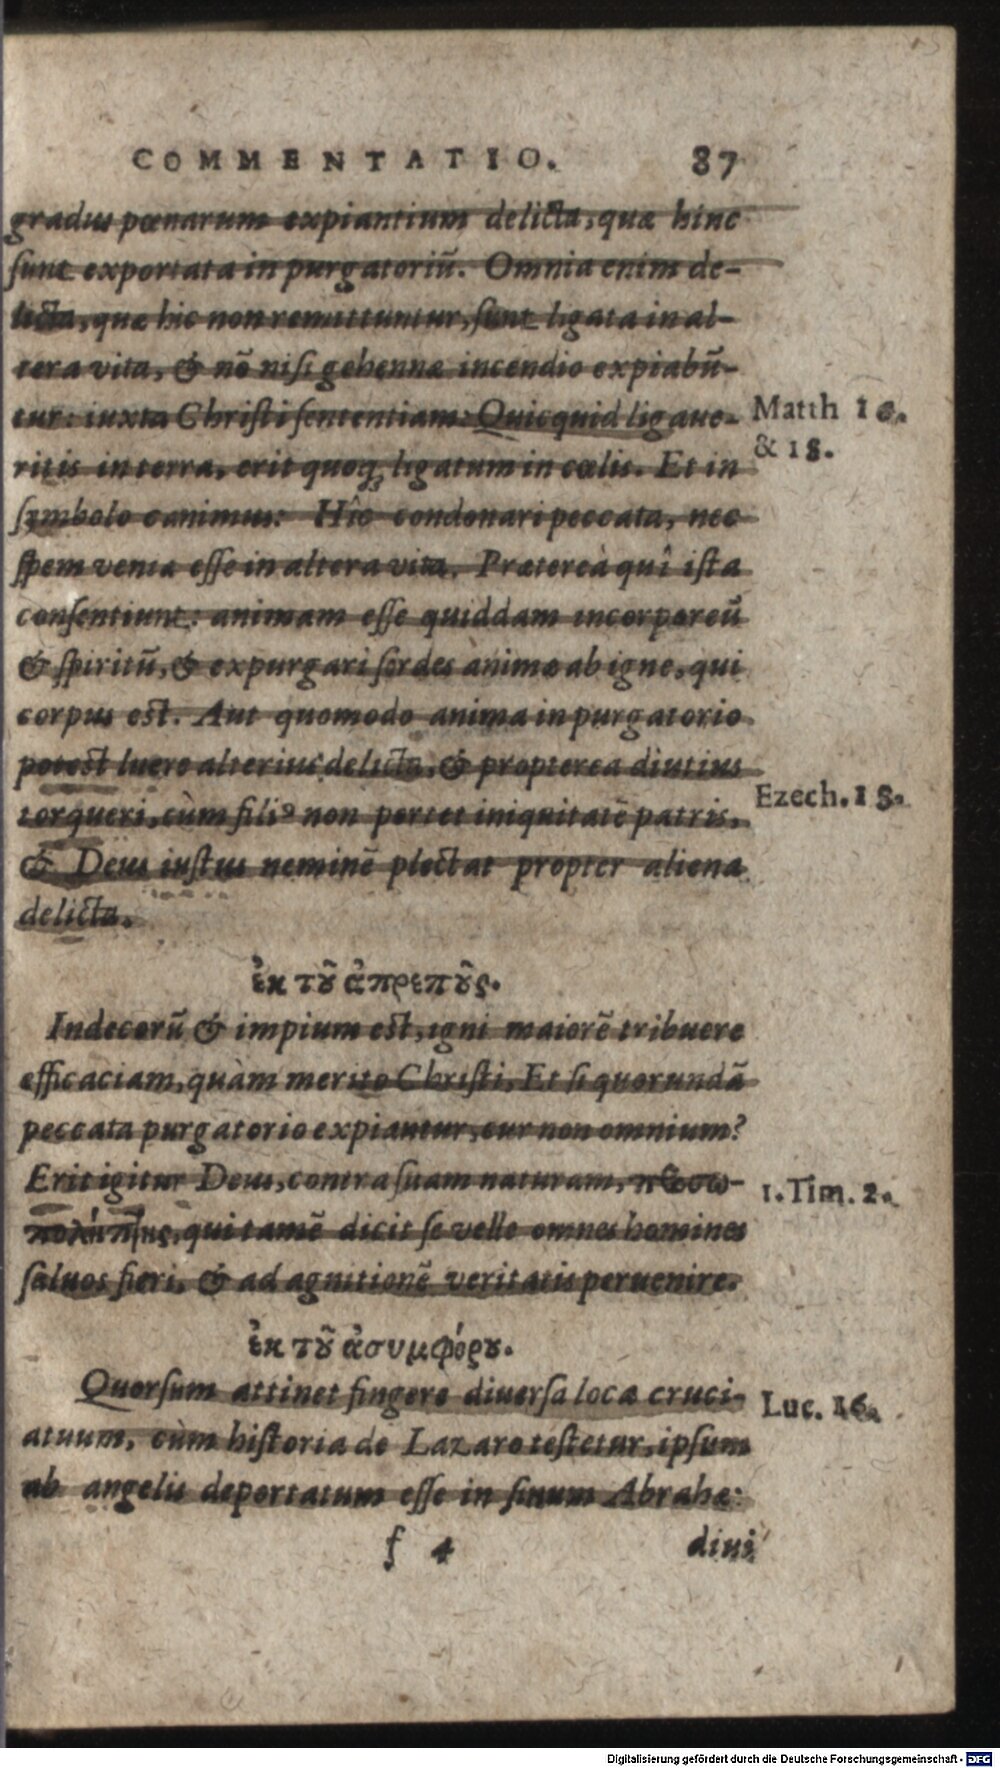 COMMENTATIO. 87
gradus pœnarum expiantium delicta, quæ hinc
sunt exportata in purgatoriũ. Omnia enim de-
licta, quæ hic non remittuntur, sunt ligata in al-
tera vita, & nõ nisi gehennæ incendio expiabũ-
tur: iuxta Christi sententiam: Quicquid ligaue-
Matth 16.
& 18.
ritis in terra, erit quoq; ligatum in cœlis. Et in
symbolo canimus: Hîc condonari peccata, nec
spem venia esse in altera vita. Præterea quî ista
consentiunt: animam esse quiddam incorporeũ
& spiritũ, & expurgari sordes animæ ab igne, qui
corpus est. Aut quomodo anima in purgatorio
potest luere alterius delicta, & propterea diutius
Ezech. 18.
torqueri, cùm filiꝰ non portet iniquitatẽ patris,
& Deus iustus neminẽ plectat propter aliena
delicta.
ἐκ τοῦ ἀπρεποῦς.
Indecorũ & impium est, igni maiorẽ tribuere
efficaciam, quàm merito Christi, Et si quorundã
peccata purgatorio expiantur, cur non omnium?
Erit igitur Deus, contra suam naturam, προσω-
1. Tim. 2.
πολήπτης, qui tamẽ dicit se velle omnes homines
saluos fieri, & ad agnitionẽ veritatis peruenire.
ἐκ τοῦ ἀσυμφόρου.
Quorsum attinet fingere diuersa loca cruci-
Luc. 16.
atuum, cùm historia de Lazaro testetur, ipsum
ab angelis deportatum esse in sinum Abrahæ:
f 4 diui
Digitalisierung gefördert durch die Deutsche Forschungsgemeinschaft - DFG